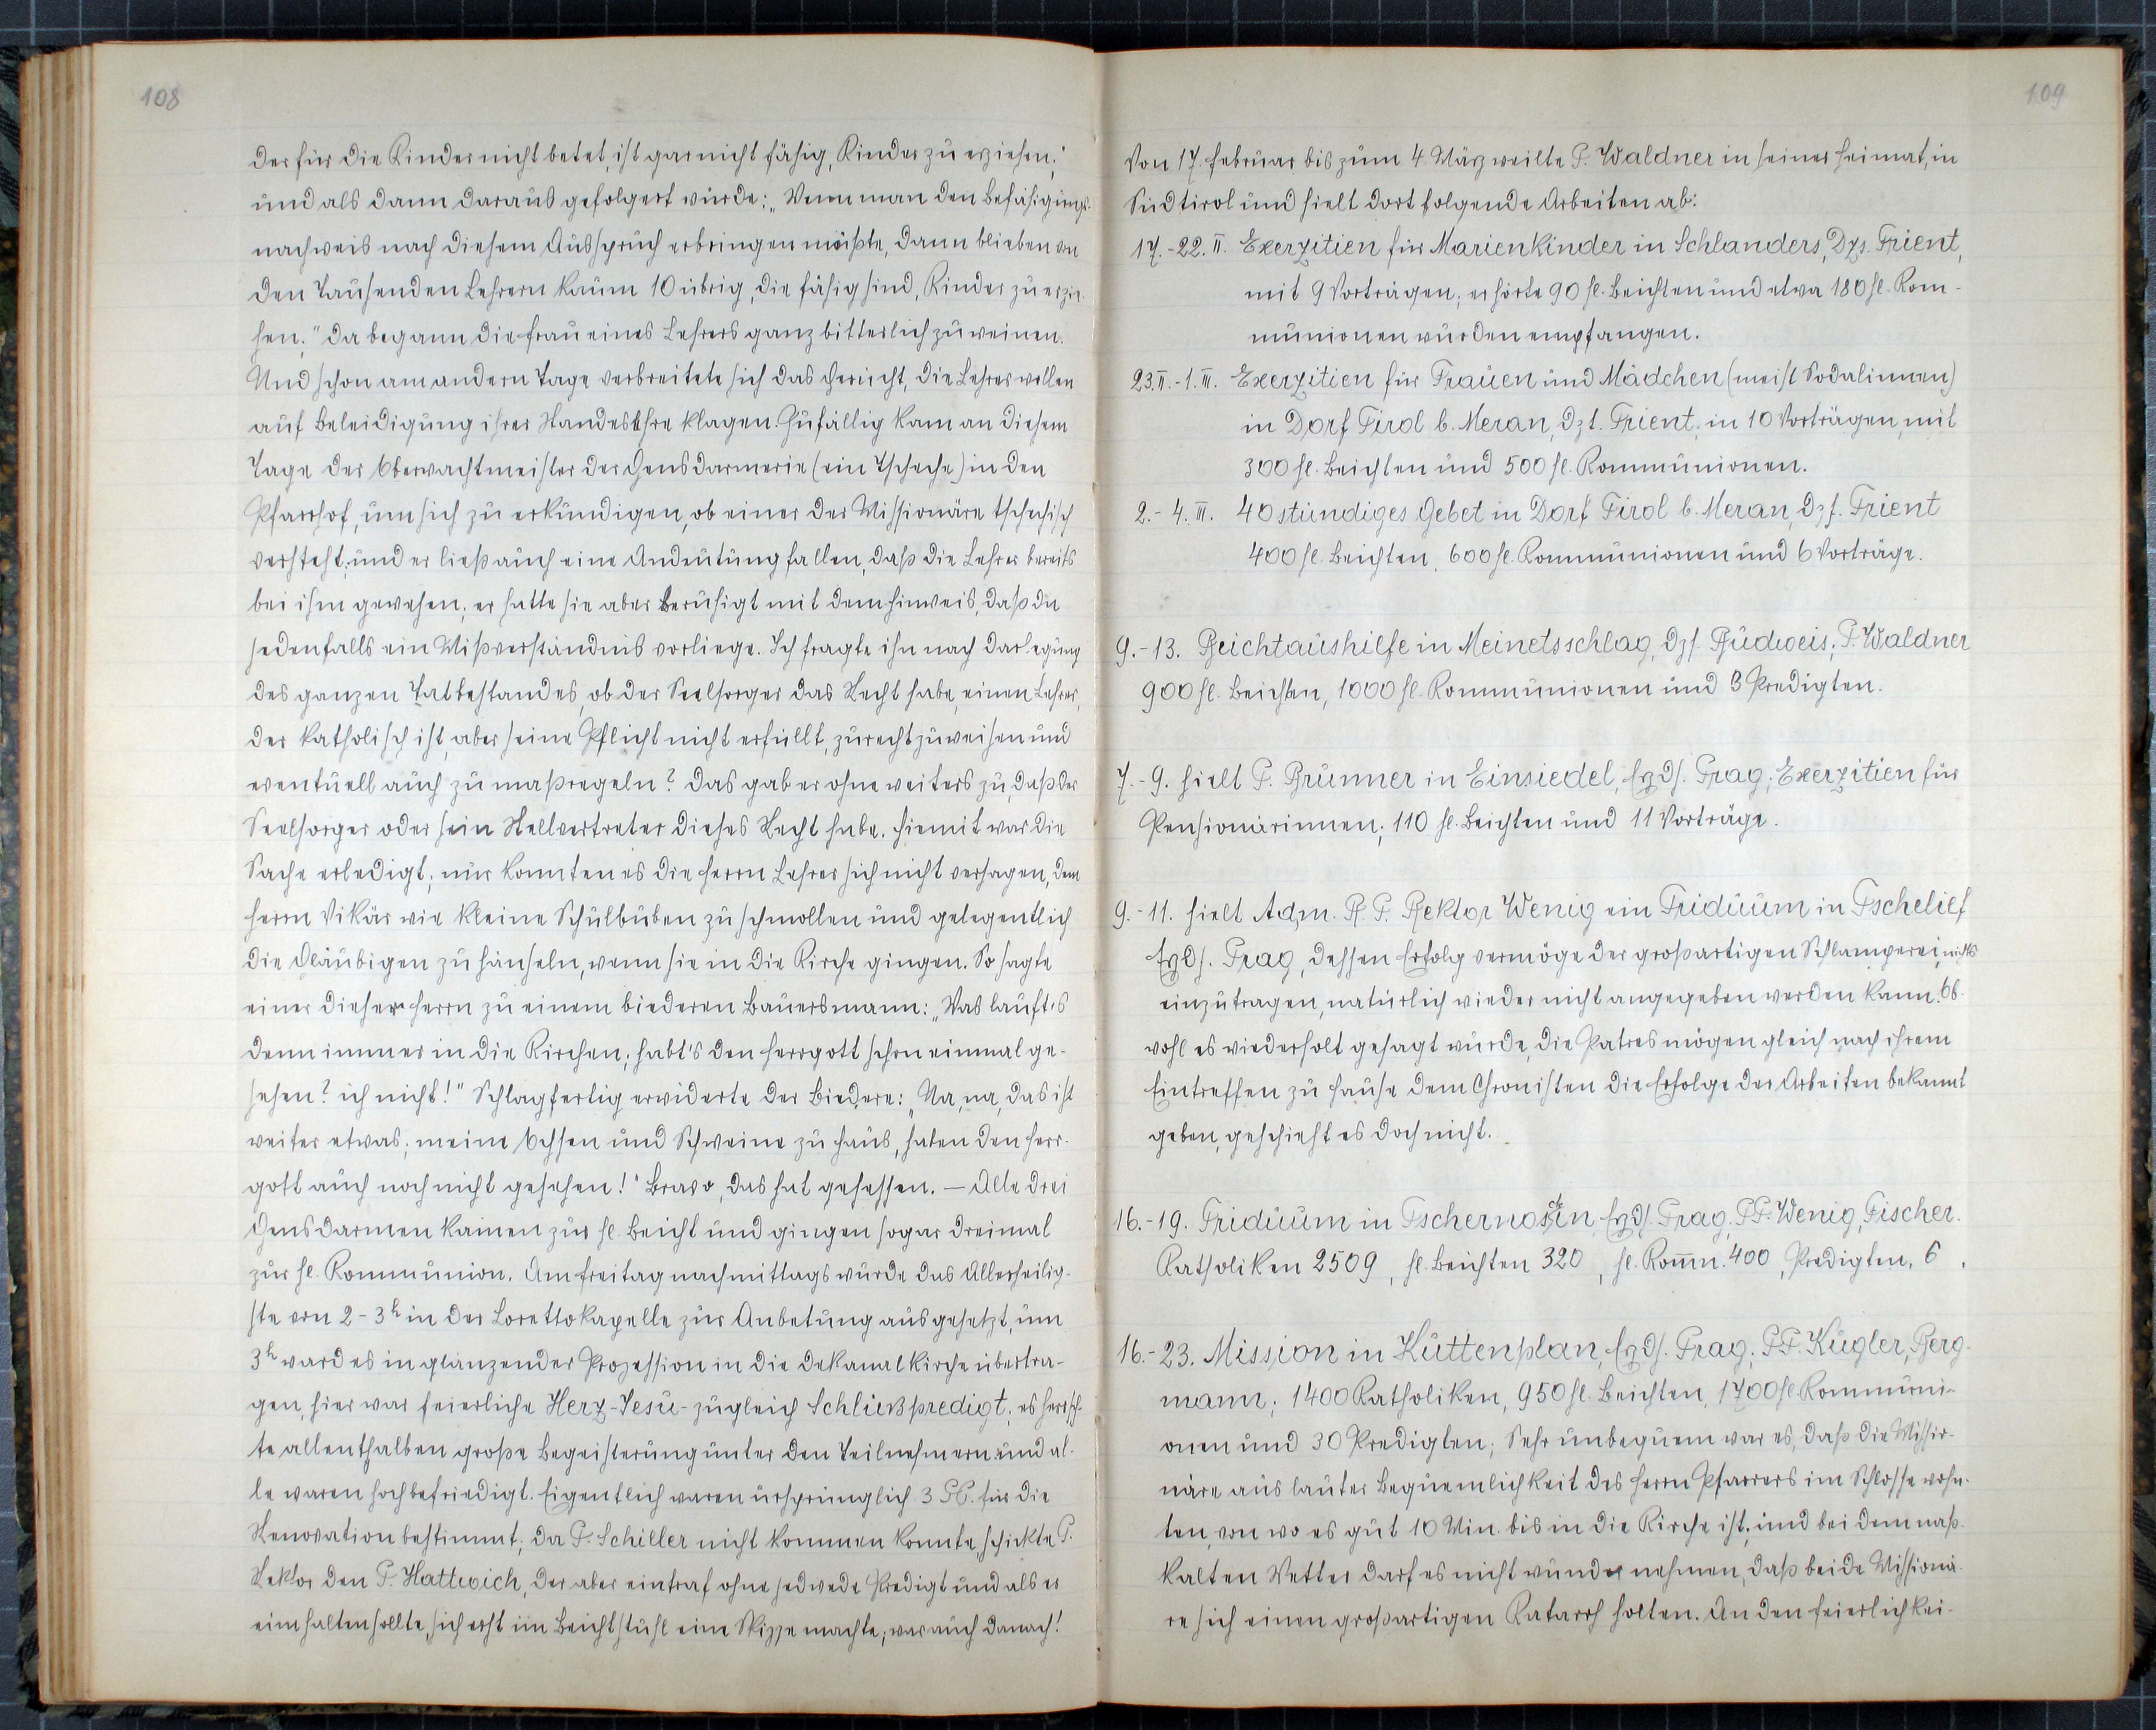 108
der für die Kinder nicht betet, ist gar nicht fähig, Kinder zu erziehen;"
und als dann daraus gefolgert wurde: „Wenn man den Befähigungs-
nachweis nach diesem Ausspruch erbringen müßte, dann blieben von
den Tausenden Lehrern kaum 10 übrig, die fähig sind, Kinder zu erzie-
hen." Da begann die Frau eines Lehrers ganz bitterlich zu weinen.
Und schon am andern Tage verbreitete sich das Gerücht, die Lehrer wollen
auf Beleidigung ihrer Standesehre klagen. Zufällig kam an diesem
Tage der Oberwachtmeister der Gensdarmerie (ein Tscheche) in den
Pfarrhof, um sich zu erkundigen, ob einer der Missionäre tschechisch
versteht; und er ließ auch eine Andeutung fallen, daß die Lehrer bereits
bei ihm gewesen; er hatte sie aber beruhigt mit dem Hinweis, daß da
jedenfalls ein Mißverständnis vorliege. Ich fragte ihn nach Darlegung
des ganzen Tatbestandes, ob der Seelsorger das Recht habe, einen Lehrer,
der katholisch ist, aber seine Pflicht nicht erfüllt, zurechtzuweisen und
eventuell auch zu maßregeln? Das gab er ohne weiters zu, daß der
Seelsorger oder sein Stellvertreter dieses Recht habe. Hiemit war die
Sache erledigt; nur konnten es die Herrn Lehrer sich nicht versagen, dem
Herrn Vikär wie kleine Schulbuben zu schmollen und gelegentlich
die Gläubigen zu hänseln, wenn sie in die Kirche gingen. So sagte
einer dieser Herrn zu einem biederen Bauersmann: „Was lauft's
denn immer in die Kirchen; habt's den Herrgott schon einmal ge-
sehen? ich nicht!" Schlagfertig erwiderte der Biedere: „Na, na, das ist
weiter etwas; meine Ochsen und Schweine zu Haus, haben den Herr-
gott auch noch nicht gesehen!" Bravo, das hat gesessen. – Alle drei
Gensdarmen kamen zur hl. Beicht und gingen sogar dreimal
zur hl. Kommunion. Am Freitag nachmittags wurde das Allerheilig-
ste von 2-3h in der Lorettokapelle zur Anbetung ausgesetzt, um
3h ward es in glänzender Prozession in die Dekanalkirche übertra-
gen, hier war feierliche Herz-Jesu- zugleich Schlußpredigt; es herrsch-
te allenthalben große Begeisterung unter den Teilnehmern und al-
le waren hochbefriedigt. Eigentlich waren ursprünglich 3 PP. für die
Renovation bestimmt; da P. Schiller nicht kommen konnte, schickte P.
Rektor den P. Hattwich, der aber eintraf ohne jedwede Predigt und als er
eine halten sollte, sich erst im Beichtstuhl eine Skizze machte; war auch danach!
109
Von 17. Februar bis zum 4. März weilte P. Waldner in seiner Heimat, in
Südtirol und hielt dort folgende Arbeiten ab:
17.-22. II. Exerzitien für Marienkinder in Schlanders, Dzs. Trient,
mit 9 Vorträgen; er hörte 90 hl. Beichten und etwa 180 hl. Kom-
munionen wurden empfangen.
23. II.-1. III. Exerzitien für Frauen und Mädchen (meist Sodalinnen)
in Dorf Tirol b. Meran, Dzs. Trient, in 10 Vorträgen, mit
300 hl. Beichten und 500 hl. Kommunionen.
2.-4. III. 40 stündiges Gebet in Dorf Tirol b. Meran, Dzs. Trient
400 hl. Beichten, 600 hl. Kommunionen und 6 Vorträge.
9.-13. Beichtaushilfe in Meinetsschlag, Dzs. Budweis; P. Waldner
900 hl. Beichten, 1000 hl. Kommunionen und 3 Predigten.
7.-9. hielt P. Brunner in Einsiedel, Erzds. Prag; Exerzitien für
Pensionärinnen; 110 hl. Beichten und 11 Vorträge.
9.-11. hielt Adm. R. P. Rektor Wenig ein Triduum in Tschelief
Erzds. Prag, dessen Erfolg vermöge der großartigen Schlamperei, nichts
einzutragen, natürlich wieder nicht angegeben werden kann. Ob-
wohl es wiederholt gesagt wurde, die Patres mögen gleich nach ihrem
Eintreffen zu Hause dem Chronisten die Erfolge der Arbeiten bekannt
geben, geschieht es doch nicht.
16.-19. Triduum in Tschernoschin, Erzds. Prag; PP. Wenig, Fischer.
Katholiken 2509, hl. Beichten 320, hl. Komn. 400, Predigten, 6.
16.-23. Mission in Kuttenplan, Erzds. Prag; PP. Kugler, Berg-
mann; 1400 Katholiken, 950 hl. Beichten, 1700 hl. Kommuni-
onen und 30 Predigten; Sehr unbequem war es, daß die Missio-
näre aus lauter Bequemlichkeit des Herrn Pfarrers im Schlosse wohn-
ten, von wo es gut 10 Min. bis in die Kirche ist; und bei dem naß-
kalten Wetter darf es nicht wunder nehmen, daß beide Missionä-
re sich einen großartigen Katarrh holten. An den Feierlichkei-